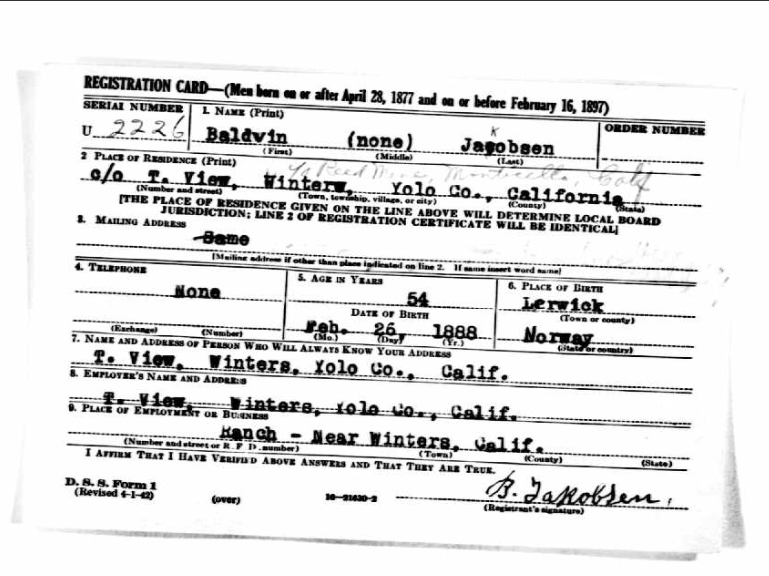 REGISTRATION CARD—(Men born on or after April 28, 1877 and on or before February 16, 1897)
SERIAL NUMBER 1. NAME (Print) ORDER NUMBER
k
U 2226 Baldwin (none) Jacobsen
(First) (Middle) (Last)
2 PLACE OF RESIDENCE (Print)
Reed Mine, Monticello, Calif
c/o T. View, Winters, Yolo Co., California
(Number and street) (Town, township, village, or city) (County) (State)
[THE PLACE OF RESIDENCE GIVEN ON THE LINE ABOVE WILL DETERMINE LOCAL BOARD
JURISDICTION; LINE 2 OF REGISTRATION CERTIFICATE WILL BE IDENTICAL]
3. MAILING ADDRESS
Same
[Mailing address if other than place indicated on line 2. If same insert word same]
4. TELEPHONE 5. AGE IN YEARS 6. PLACE OF BIRTH
None 54 Lerwick
DATE OF BIRTH (Town or county)
Feb. 26 1888 Norway
(Exchange) (Number) (Mo.) (Day) (Yr.) (State or country)
7. NAME AND ADDRESS OF PERSON WHO WILL ALWAYS KNOW YOUR ADDRESS
T. View, Winters, Yolo Co., Calif.
8. EMPLOYER'S NAME AND ADDRESS
T. View, Winters, Yolo Co., Calif.
9. PLACE OF EMPLOYMENT OR BUSINESS
Ranch - Near Winters, Calif.
(Number and street or R. F. D. number) (Town) (County) (State)
I AFFIRM THAT I HAVE VERIFIED ABOVE ANSWERS AND THAT THEY ARE TRUE.
D. S. S. Form 1
(Revised 4-1-42) (over) 16—21630-2 B. Jakobsen
(Registrant's signature)